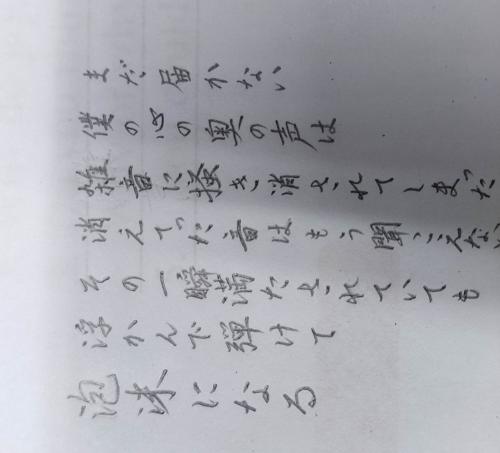 まだ届かない
僕の心の奥の声は
雑音に掻き消されてしまった
消えてった音はもう聞こえない
その一瞬満たされていても
浮かんで弾けて
泡沫になる